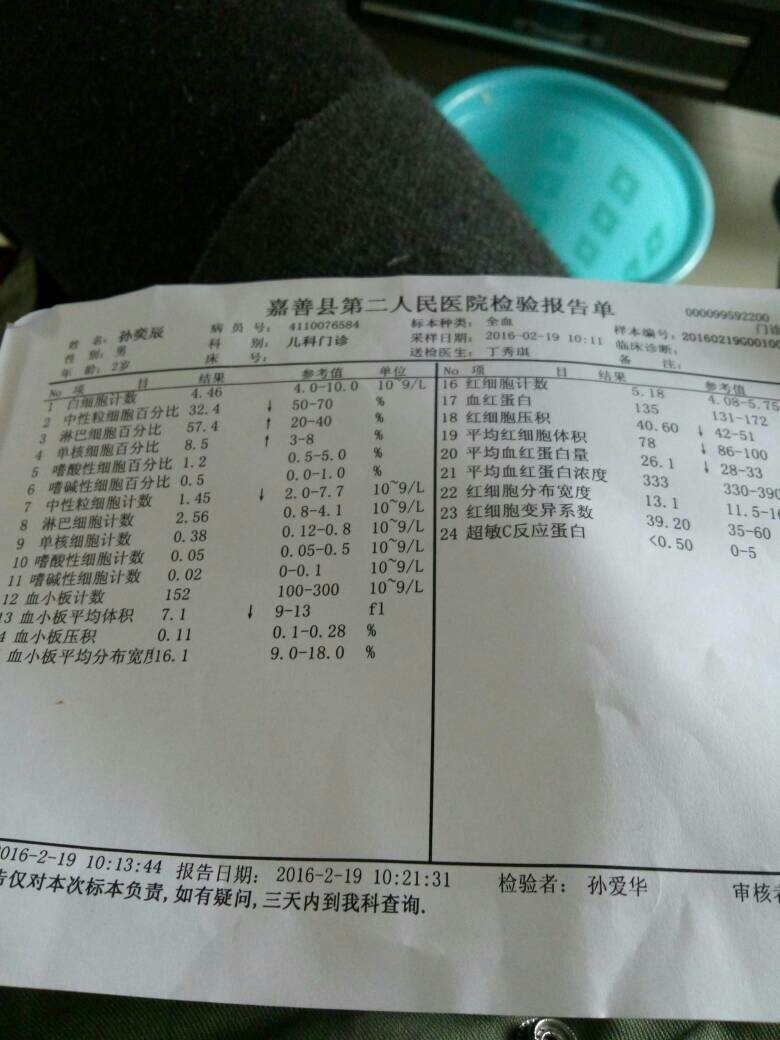 嘉善县第二人民医院检验报告单
000099592200
姓 名: 孙奕辰 病 员 号: 4110076584 标本种类: 全血 门诊
性 别: 男 科 别: 儿科门诊 采样日期: 2016-02-19 10:11 样本编号: 20160219G0010
年 龄: 2岁 床 号: 送检医生: 丁秀琪 临床诊断:
备 注:
No 项 目 结果 参考值 单位
1 白细胞计数 4.46 4.0-10.0 10^9/L
2 中性粒细胞百分比 32.4 ↓ 50-70 %
3 淋巴细胞百分比 57.4 ↑ 20-40 %
4 单核细胞百分比 8.5 ↑ 3-8 %
5 嗜酸性细胞百分比 1.2 0.5-5.0 %
6 嗜碱性细胞百分比 0.5 0.0-1.0 %
7 中性粒细胞计数 1.45 ↓ 2.0-7.7 10^9/L
8 淋巴细胞计数 2.56 0.8-4.1 10^9/L
9 单核细胞计数 0.38 0.12-0.8 10^9/L
10 嗜酸性细胞计数 0.05 0.05-0.5 10^9/L
11 嗜碱性细胞计数 0.02 0-0.1 10^9/L
12 血小板计数 152 100-300 10^9/L
13 血小板平均体积 7.1 ↓ 9-13 fl
4 血小板压积 0.11 0.1-0.28 %
血小板平均分布宽度 16.1 9.0-18.0 %
No 项 目 结果 参考值
16 红细胞计数 5.18 4.08-5.75
17 血红蛋白 135 131-172
18 红细胞压积 40.60 ↓ 42-51
19 平均红细胞体积 78 ↓ 86-100
20 平均血红蛋白量 26.1 ↓ 28-33
21 平均血红蛋白浓度 333 330-390
22 红细胞分布宽度 13.1 11.5-16
23 红细胞变异系数 39.20 35-60
24 超敏C反应蛋白 <0.50 0-5
2016-2-19 10:13:44 报告日期: 2016-2-19 10:21:31 检验者: 孙爱华 审核者
告仅对本次标本负责,如有疑问,三天内到我科查询.